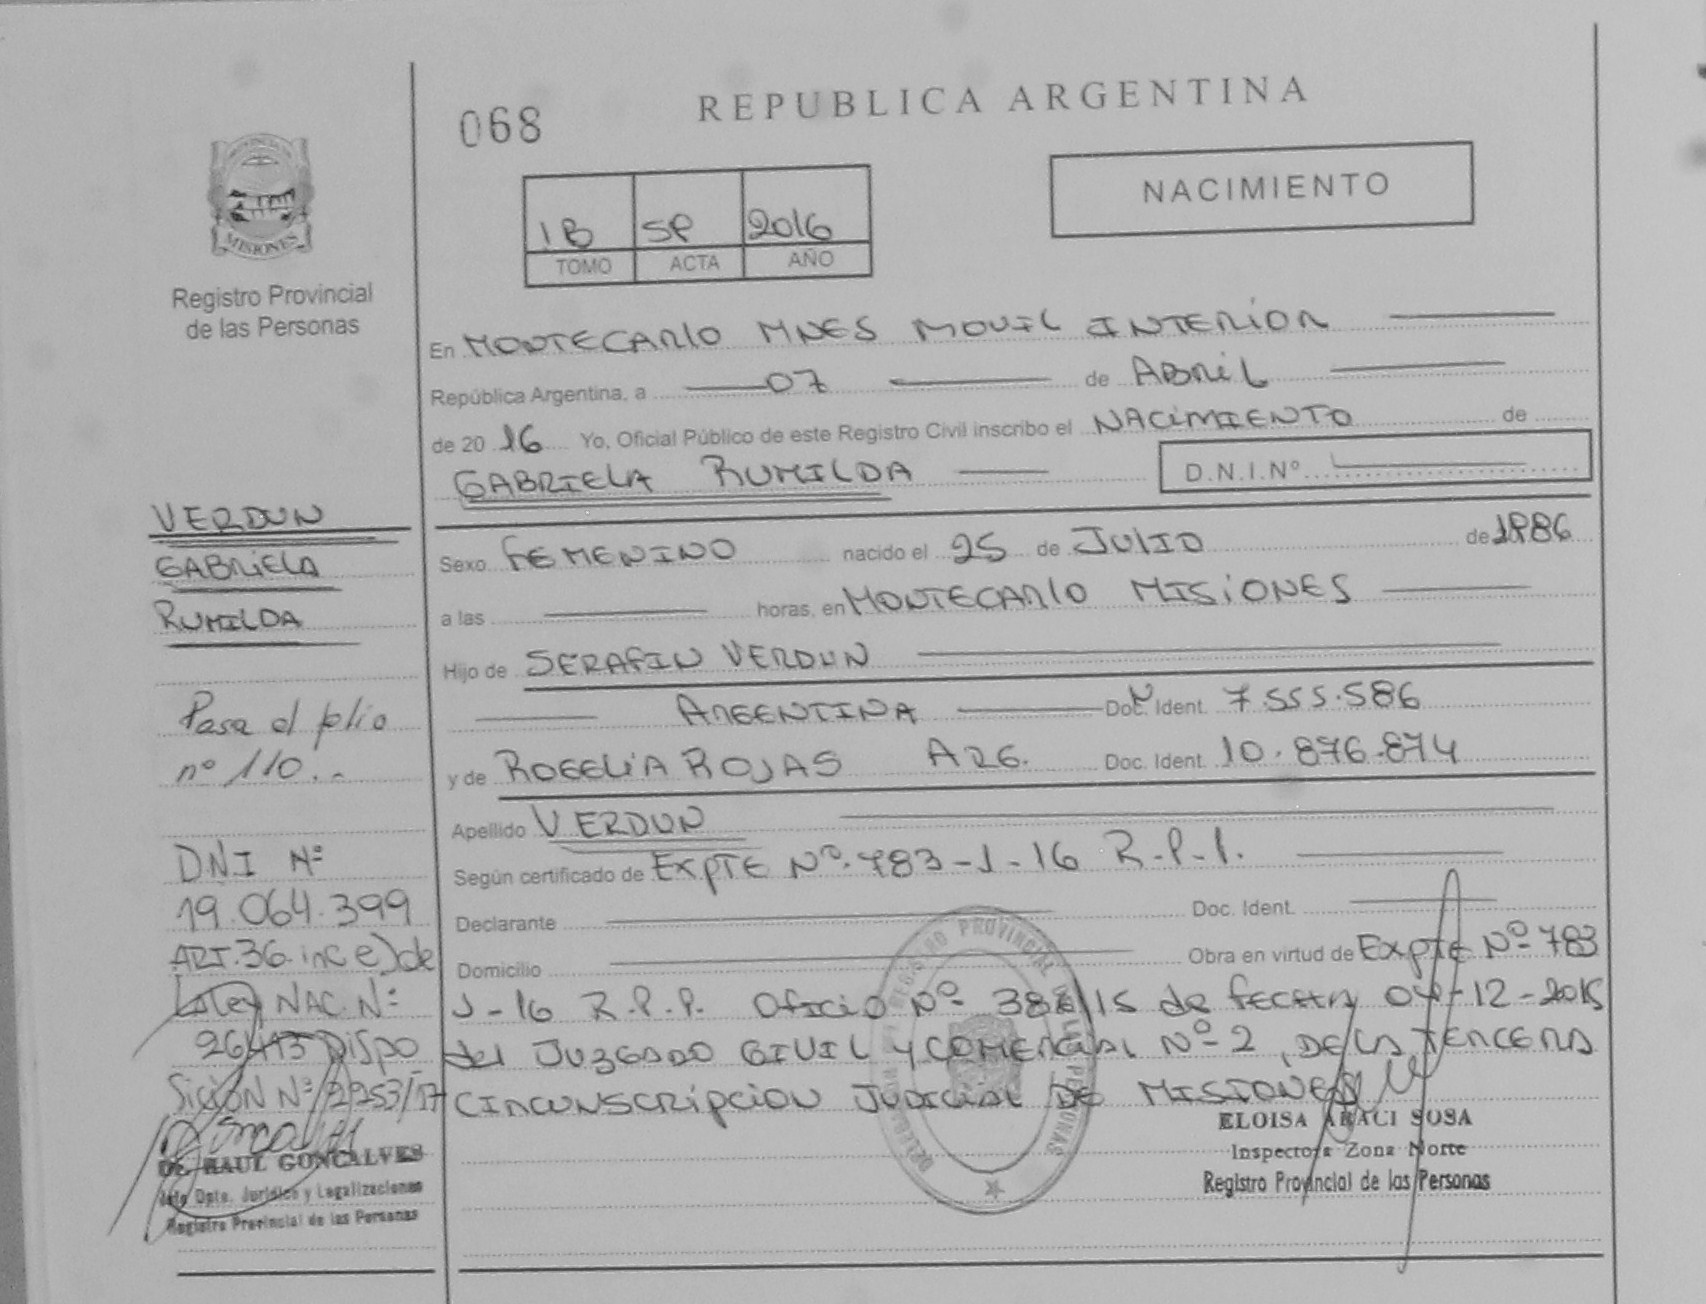 068
REPUBLICA ARGENTINA
NACIMIENTO
1B SP 2016
TOMO ACTA AÑO
MISIONES
Registro Provincial
de las Personas
En MONTECARLO MNES MOVIL INTERIOR
República Argentina, a 07 de ABRIL
de 20 16 Yo, Oficial Público de este Registro Civil inscribo el NACIMIENTO de
GABRIELA RUMILDA D.N.I.Nº
Sexo FEMENINO nacido el 25 de JULIO de 1986
a las horas, en MONTECARLO MISIONES
Hijo de SERAFIN VERDUN
ARGENTINA Doc. Ident. 7.555.586
y de ROGELIA ROJAS ARG. Doc. Ident. 10.876.874
Apellido VERDUN
Según certificado de EXPTE Nº 783-J-16 R.P.P.
Declarante Doc. Ident.
Domicilio Obra en virtud de EXPTE Nº 783
J-16 R.P.P. Oficio Nº /15 de FECHA 04-12-2015
del JUZGADO CIVIL y COMERCIAL Nº 2, DE LA TERCERA
CIRCUNSCRIPCION JUDICIAL DE MISIONES
ELOISA ARACI SOSA
Inspectora Zona Norte
Registro Provincial de las Personas
VERDUN
GABRIELA
RUMILDA
Pasa al folio
nº 110..
DNI Nº
19.064.399
ART.36 inc e) de
La Ley NAC. Nº
26413 DISPO
SICIÓN Nº 2253/17
Dr. RAUL GONCALVES
Jefe Dpto. Jurídico y Legalizaciones
Registro Provincial de las Personas
REGISTRO PROVINCIAL DE LAS PERSONAS